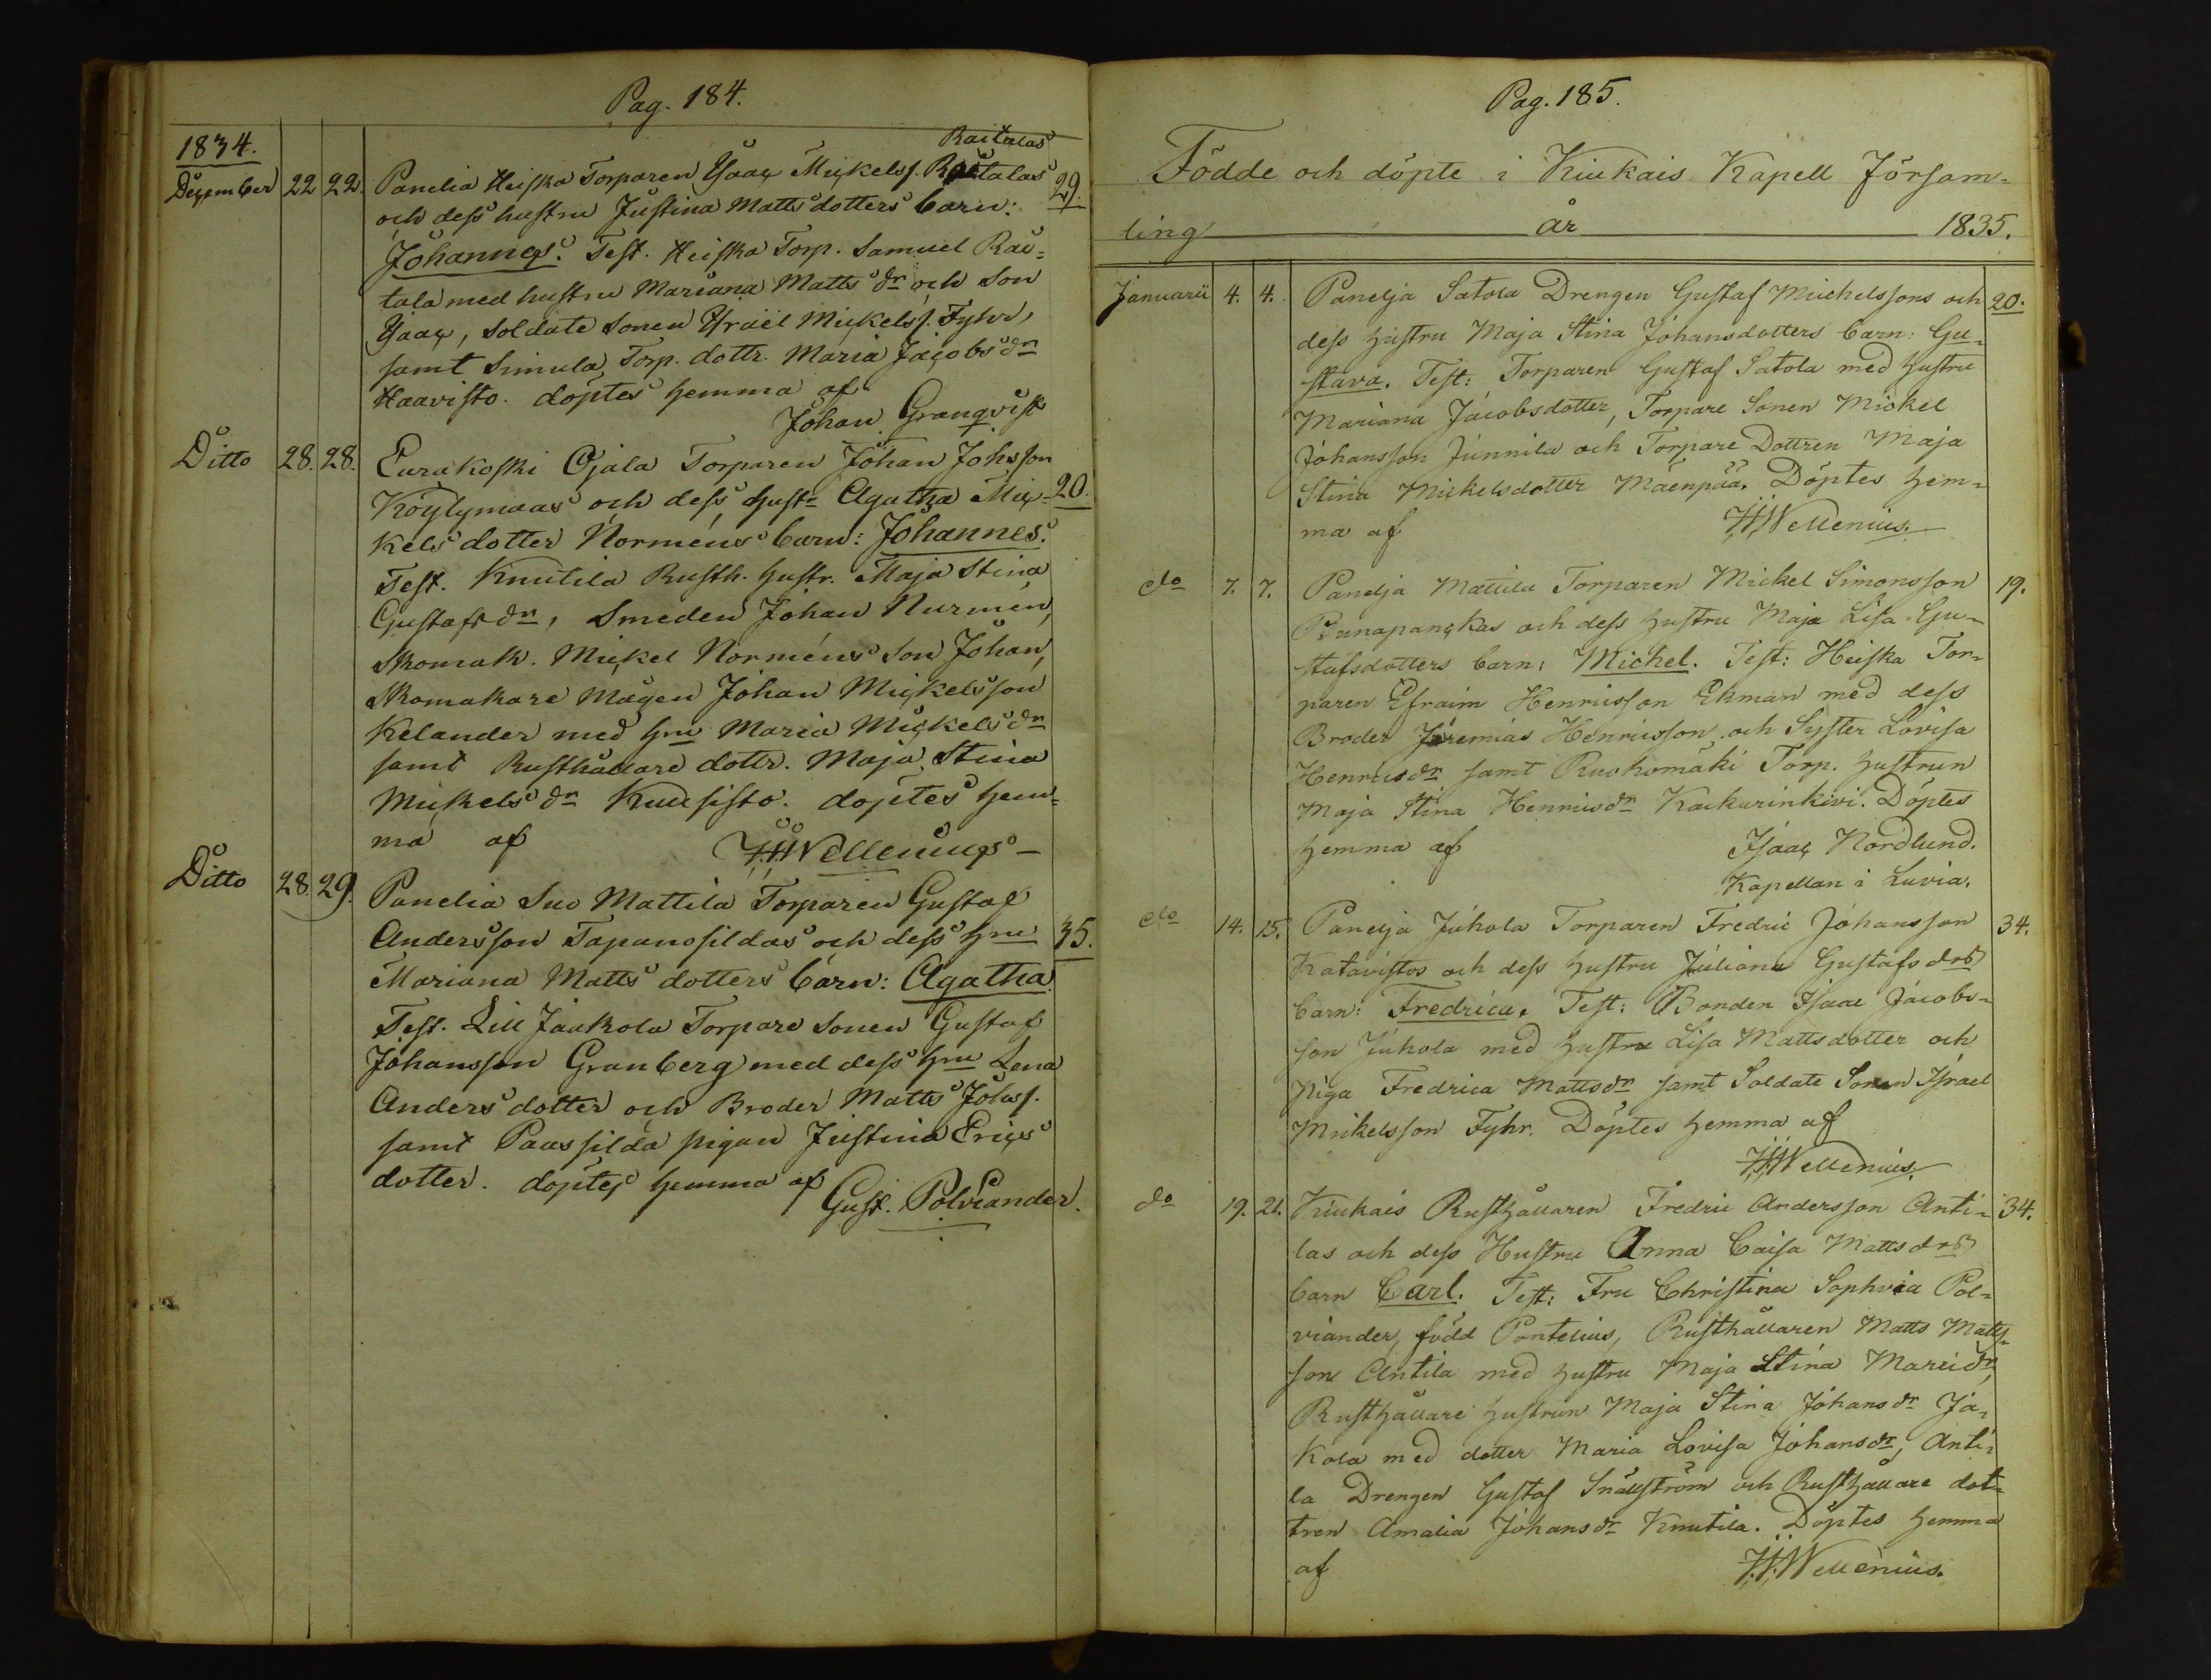 Pag. 184.
1834.
Raitalas
December 22 22. Panelia Heiska Torparen Isaac Mickelss. Raitalas 29.
och dess hustru Justina Matts dotters barn:
Johannes. Test. Heiska Torp. Samuel Rai-
tala med hustru Mariana Matts dr och son
Isaac, Soldate Sonen Israël Mickelss. Fyhr,
samt Simula Torp. dottr. Maria Jacobs dr
Haavisto. döptes hemma af
Johan Granqvist
Ditto 28. 28. Eurakoski Ojala Torparen Johan Johsson
Köylymaas och dess hustr Agatha Mic- 20.
kels dotter Norméns barn: Johannes.
Test. Knutila Rusth. hustr. Maja Stina
Gustafs dr, Smeden Johan Nurmén,
Skomak. Mickel Norméns son Johan,
Skomakare Mågen Johan Mickelsson
Kelander med hru Maria Mickels dr
samt Rusthållare dottr. Maja Stina
Mickels dr Kuusisto. döptes hem-
ma af H.H. Wellenius
Ditto 28. 29. Panelia Suo Mattila Torparen Gustaf
Andersson Tapanosildas och dess hru 35.
Mariana Matts dotters barn: Agatha
Test. Lill Jaakola Torpare Sonen Gustaf
Johansson Granberg med dess hru Lena
Anders dotter och Broder Matts Johss.
samt Paassilda pigan Justina Erics
dotter. döptes hemma af Gust. Polviander.
Pag. 185.
Födde och döpte i Kiukais Kapell Församling
år 1835.
Januarii 4. 4. Panelja Satola Drengen Gustaf Michelssons och 20.
dess hustru Maja Stina Johansdotters barn: Gu-
stava. Test: Torparen Gustaf Satola med hustru
Mariana Jacobsdotter, Torpare Sonen Mickel
Johansson Junnila och Torpare Dottren Maja
Stina Mickelsdotter Mäenpää. Döptes hem-
ma af H.H. Wellenius.
do 7. 7. Panelja Mattila Torparen Mickel Simonsson 19.
Punapanckas och dess hustru Maja Lisa Gu-
stafsdotters barn: Michel. Test: Heiska Tor-
paren Efraim Henricsson Ekman med dess
Broder Jeremias Henricsson och Syster Lovisa
Henricsdr samt Ruokomäki Torp. hustrun
Maja Stina Henricsdr Kackurinkivi. Döptes
hemma af Isaac Nordlund.
Kapellan i Luvia.
do 14. 15. Panelja Juhola Torparen Fredric Johansson 34.
Katavistos och dess hustru Juliana Gustafs drs
barn: Fredrica. Test: Bonden Isaac Jacobs-
son Juhola med hustru Lisa Mattsdotter och
piga Fredrica Mattsdr samt Soldate Sonen Israel
Mickelsson Fyhr. Döptes hemma af
H.H. Wellenius.
do 19. 21. Kiukais Rusthållaren Fredric Andersson Anti- 34.
las och dess Hustru Anna Caisa Mattsdrs
barn Carl. Test: Fru Christina Sophia Pol-
viander, född Pontelius, Rusthållaren Matts Matts-
son Antila med hustru Maja Stina Marcidr,
Rusthållare hustrun Maja Stina Johansdr Ja-
kola med dotter Maria Lovisa Johansdr, Anti-
la Drengen Gustaf Snällström och Rusthållare dot-
tren Amalia Johansdr Knutila. Döptes hemma
af H.H. Wellenius.